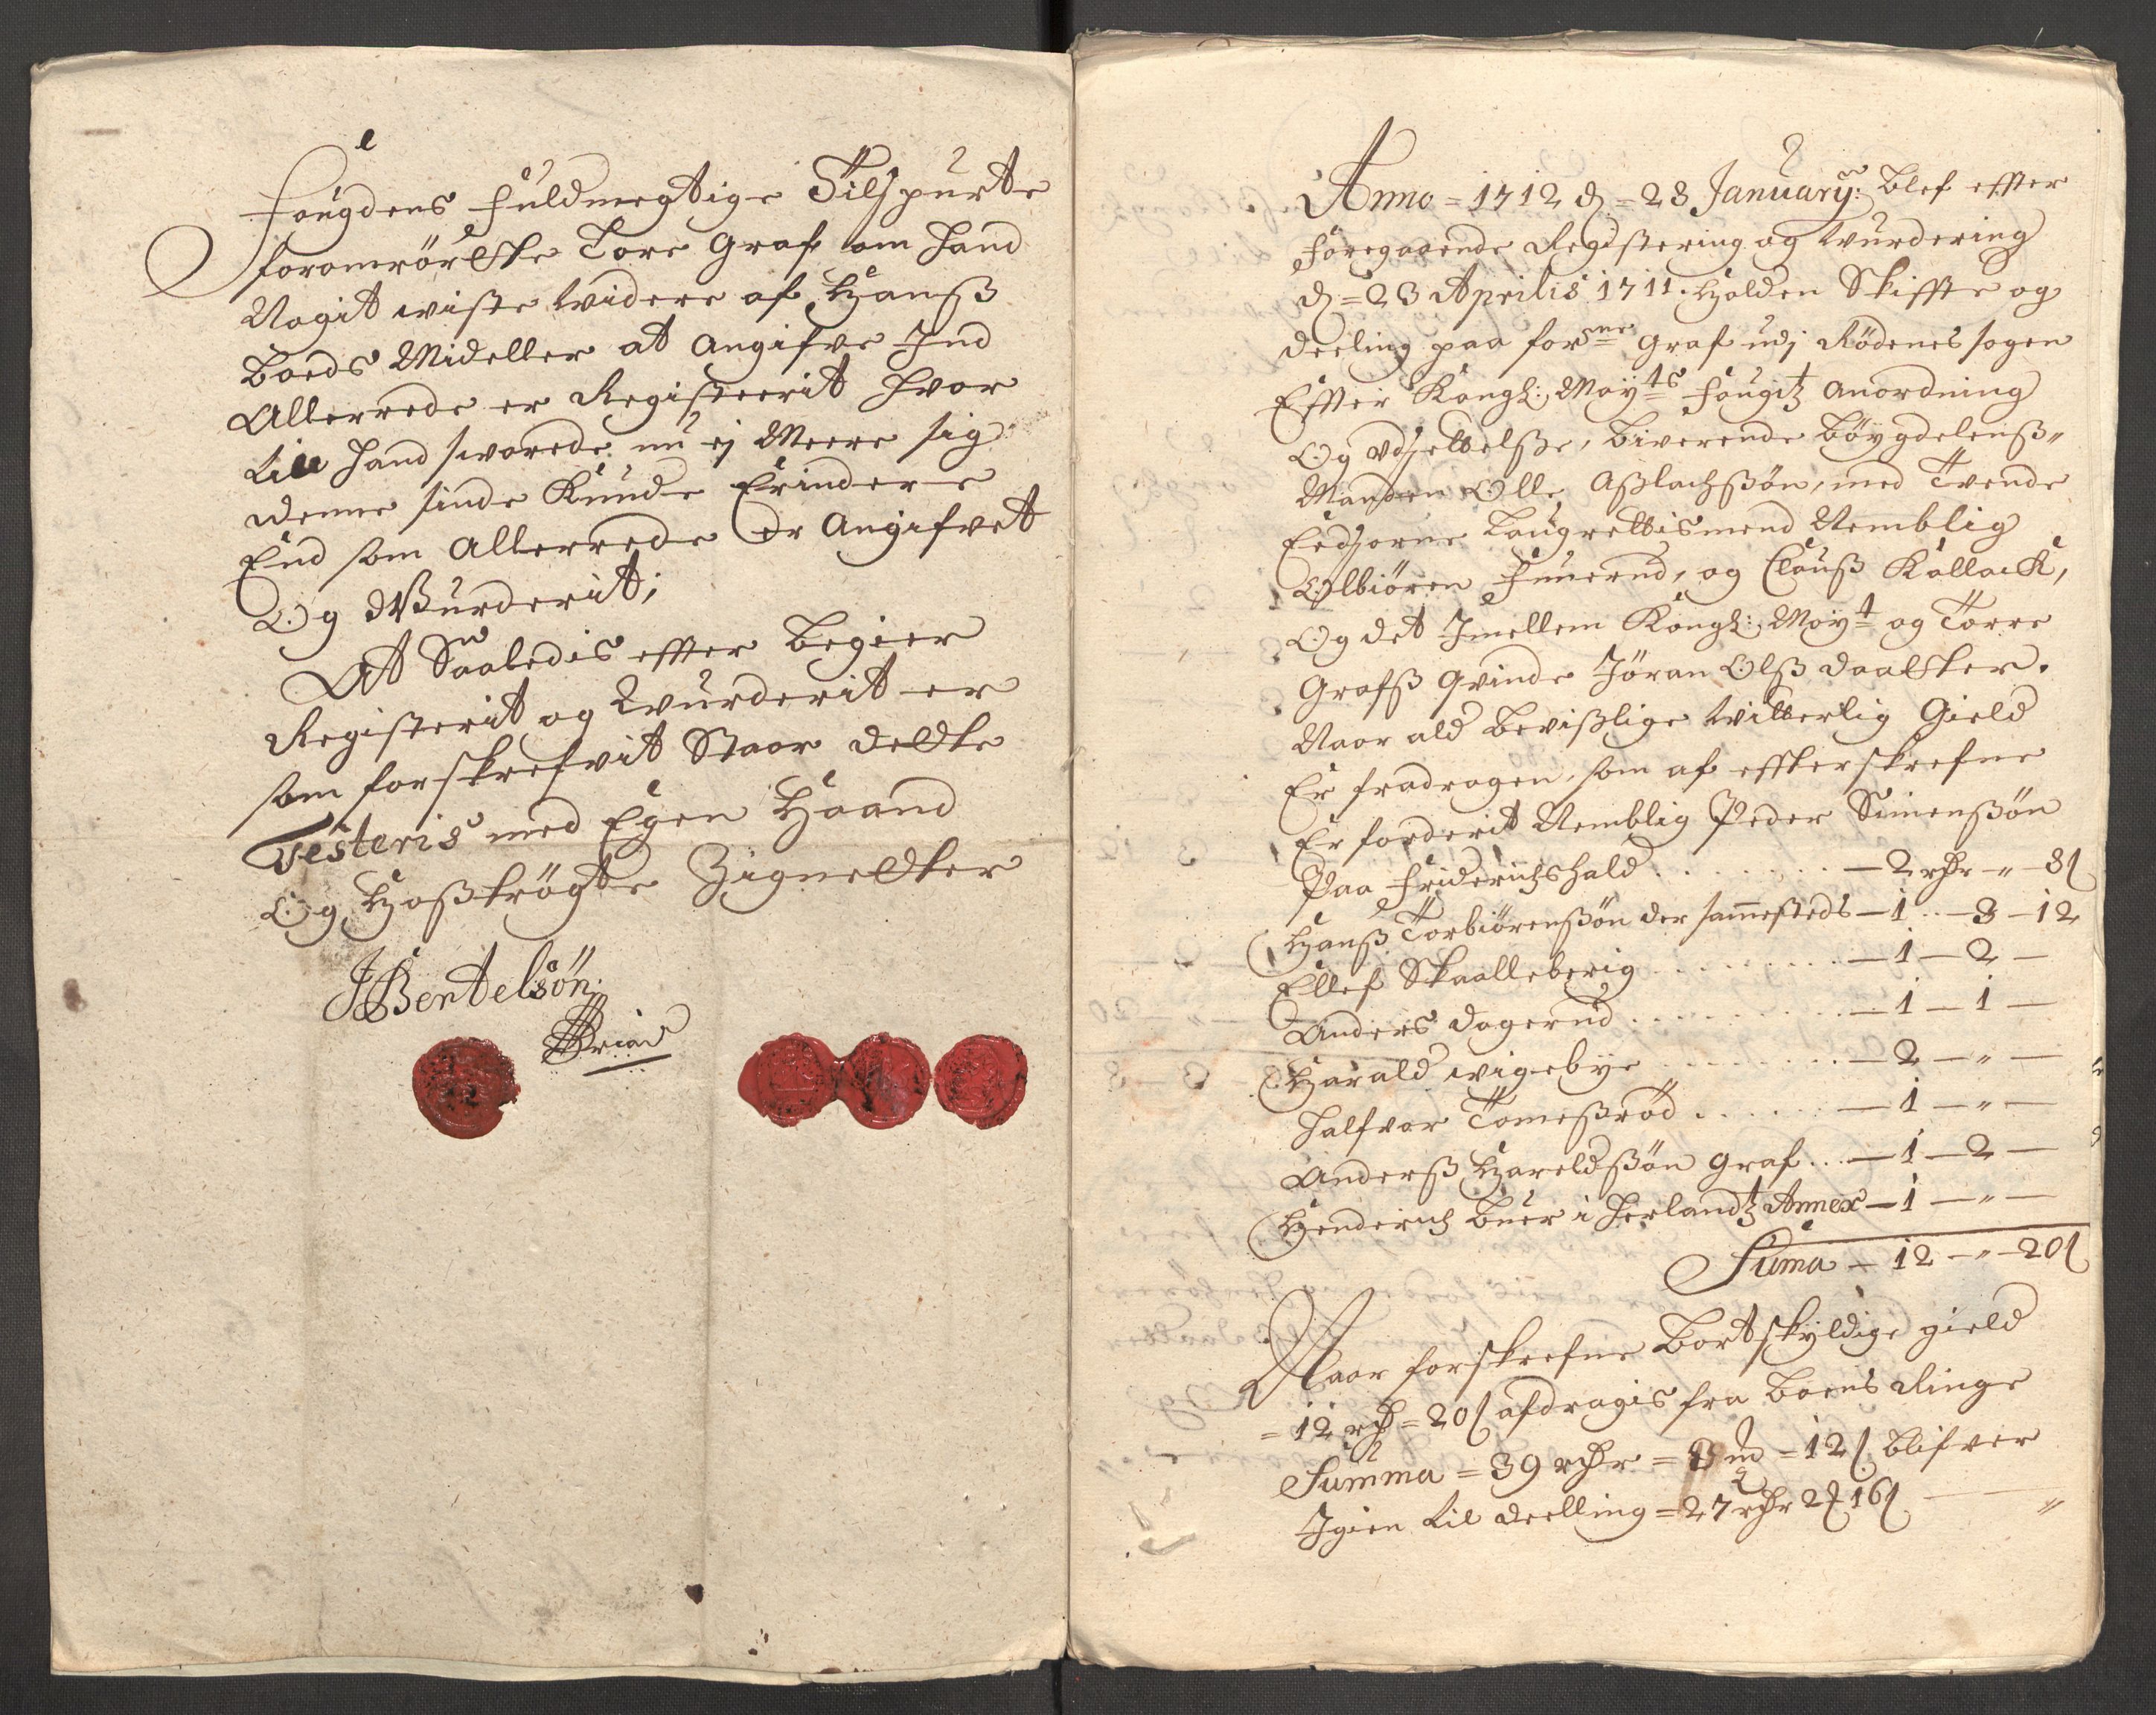 Fougdens fuldmegtige Tilspurte
foromrörtte Tore Graf om hand
Nogit wiste widere af Hanß
Boeds Mideller at angifve Ind
Allerrede er Registeerit hvor
till hand svarede nu ej Meere sig
denne sinde Kunde Erindere
End som Allerrede er Angifvet
Og Wurderit;
At Saaledis effter Begier
Registerit og Wurderit er
som forskrefvit Staar dette
Testeris med Egen Haand
Og Hoßtrögte Zignetter
JBentelsön:
Anno = 1712 d = 28 January: blef effter
foregaaende Registering og Wurdering
d = 23 Aprilis 1711. holden Skiffte og
deeling paa forne Graf udj Rödenes sogen
Effter Kongl: Mayts fougitz anordning
Og Udsettelsse, biverende bøygdelenß„
Manden Olle Aßlachßön, med Tvende
Eedsorne laugrettismend Nemblig
Olbiören Funerud, og Clauß Kallack,
Og det Jmellem Kongl: Mayt og Torre
Grafß qvinde Jöran Olß daatter.
Naar ald bevißlige witterlig Gield
Er fradragen, som af effterskrefne
Er forderit Nemblig Peder Simenßön
Paa Friderichshald . . . . . . . — 2 rdr - „ - 8 s
Hanß Torbiörenßön der sammesteds — 1 .. — 3 - 12
Ellef Skaalleberig . . . . . . . . — 1 — 2 —
Anders dagerud . . . . . . . . . — 1 — 1 —
Harald wigebye . . . . . . . — 2 — „ —
Halfvor Tomeßröd . . . . . . — 1 — „ —
Anderß Hareldßön Graf . . . — 1 — 2 —
Henderich buer i Herlandtz Annex — 1 — „ —
Suma — 12 — „ — 20 s
Naar forskrefne bortskyldige gield
= 12 rd = 20 s afdragis fra boens Ringe
Summa = 39 rdr = 3 m = 12 s blifver
Jgien til deelling = 27 rdr 2 m 16 s — „